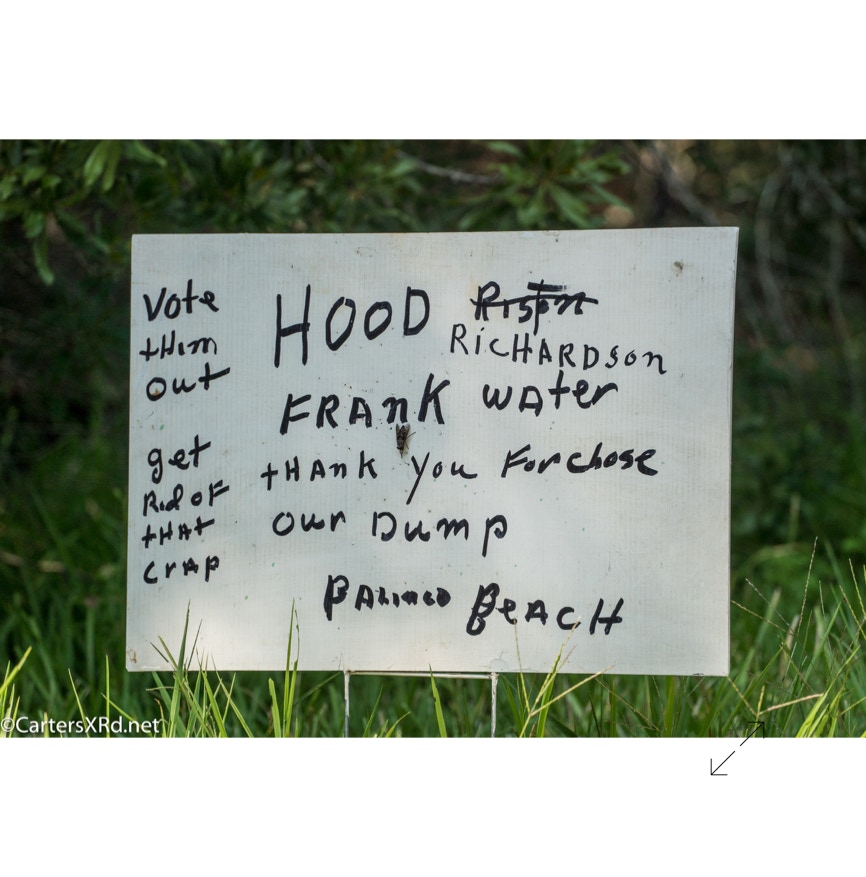 Vote
tHim
out
get
Rid oF
tHAt
CrAp
HOOD
RiCHARDSon
FRAnK WAter
tHAnK you For chose
our Dump
BeACH
©CartersXRd.net